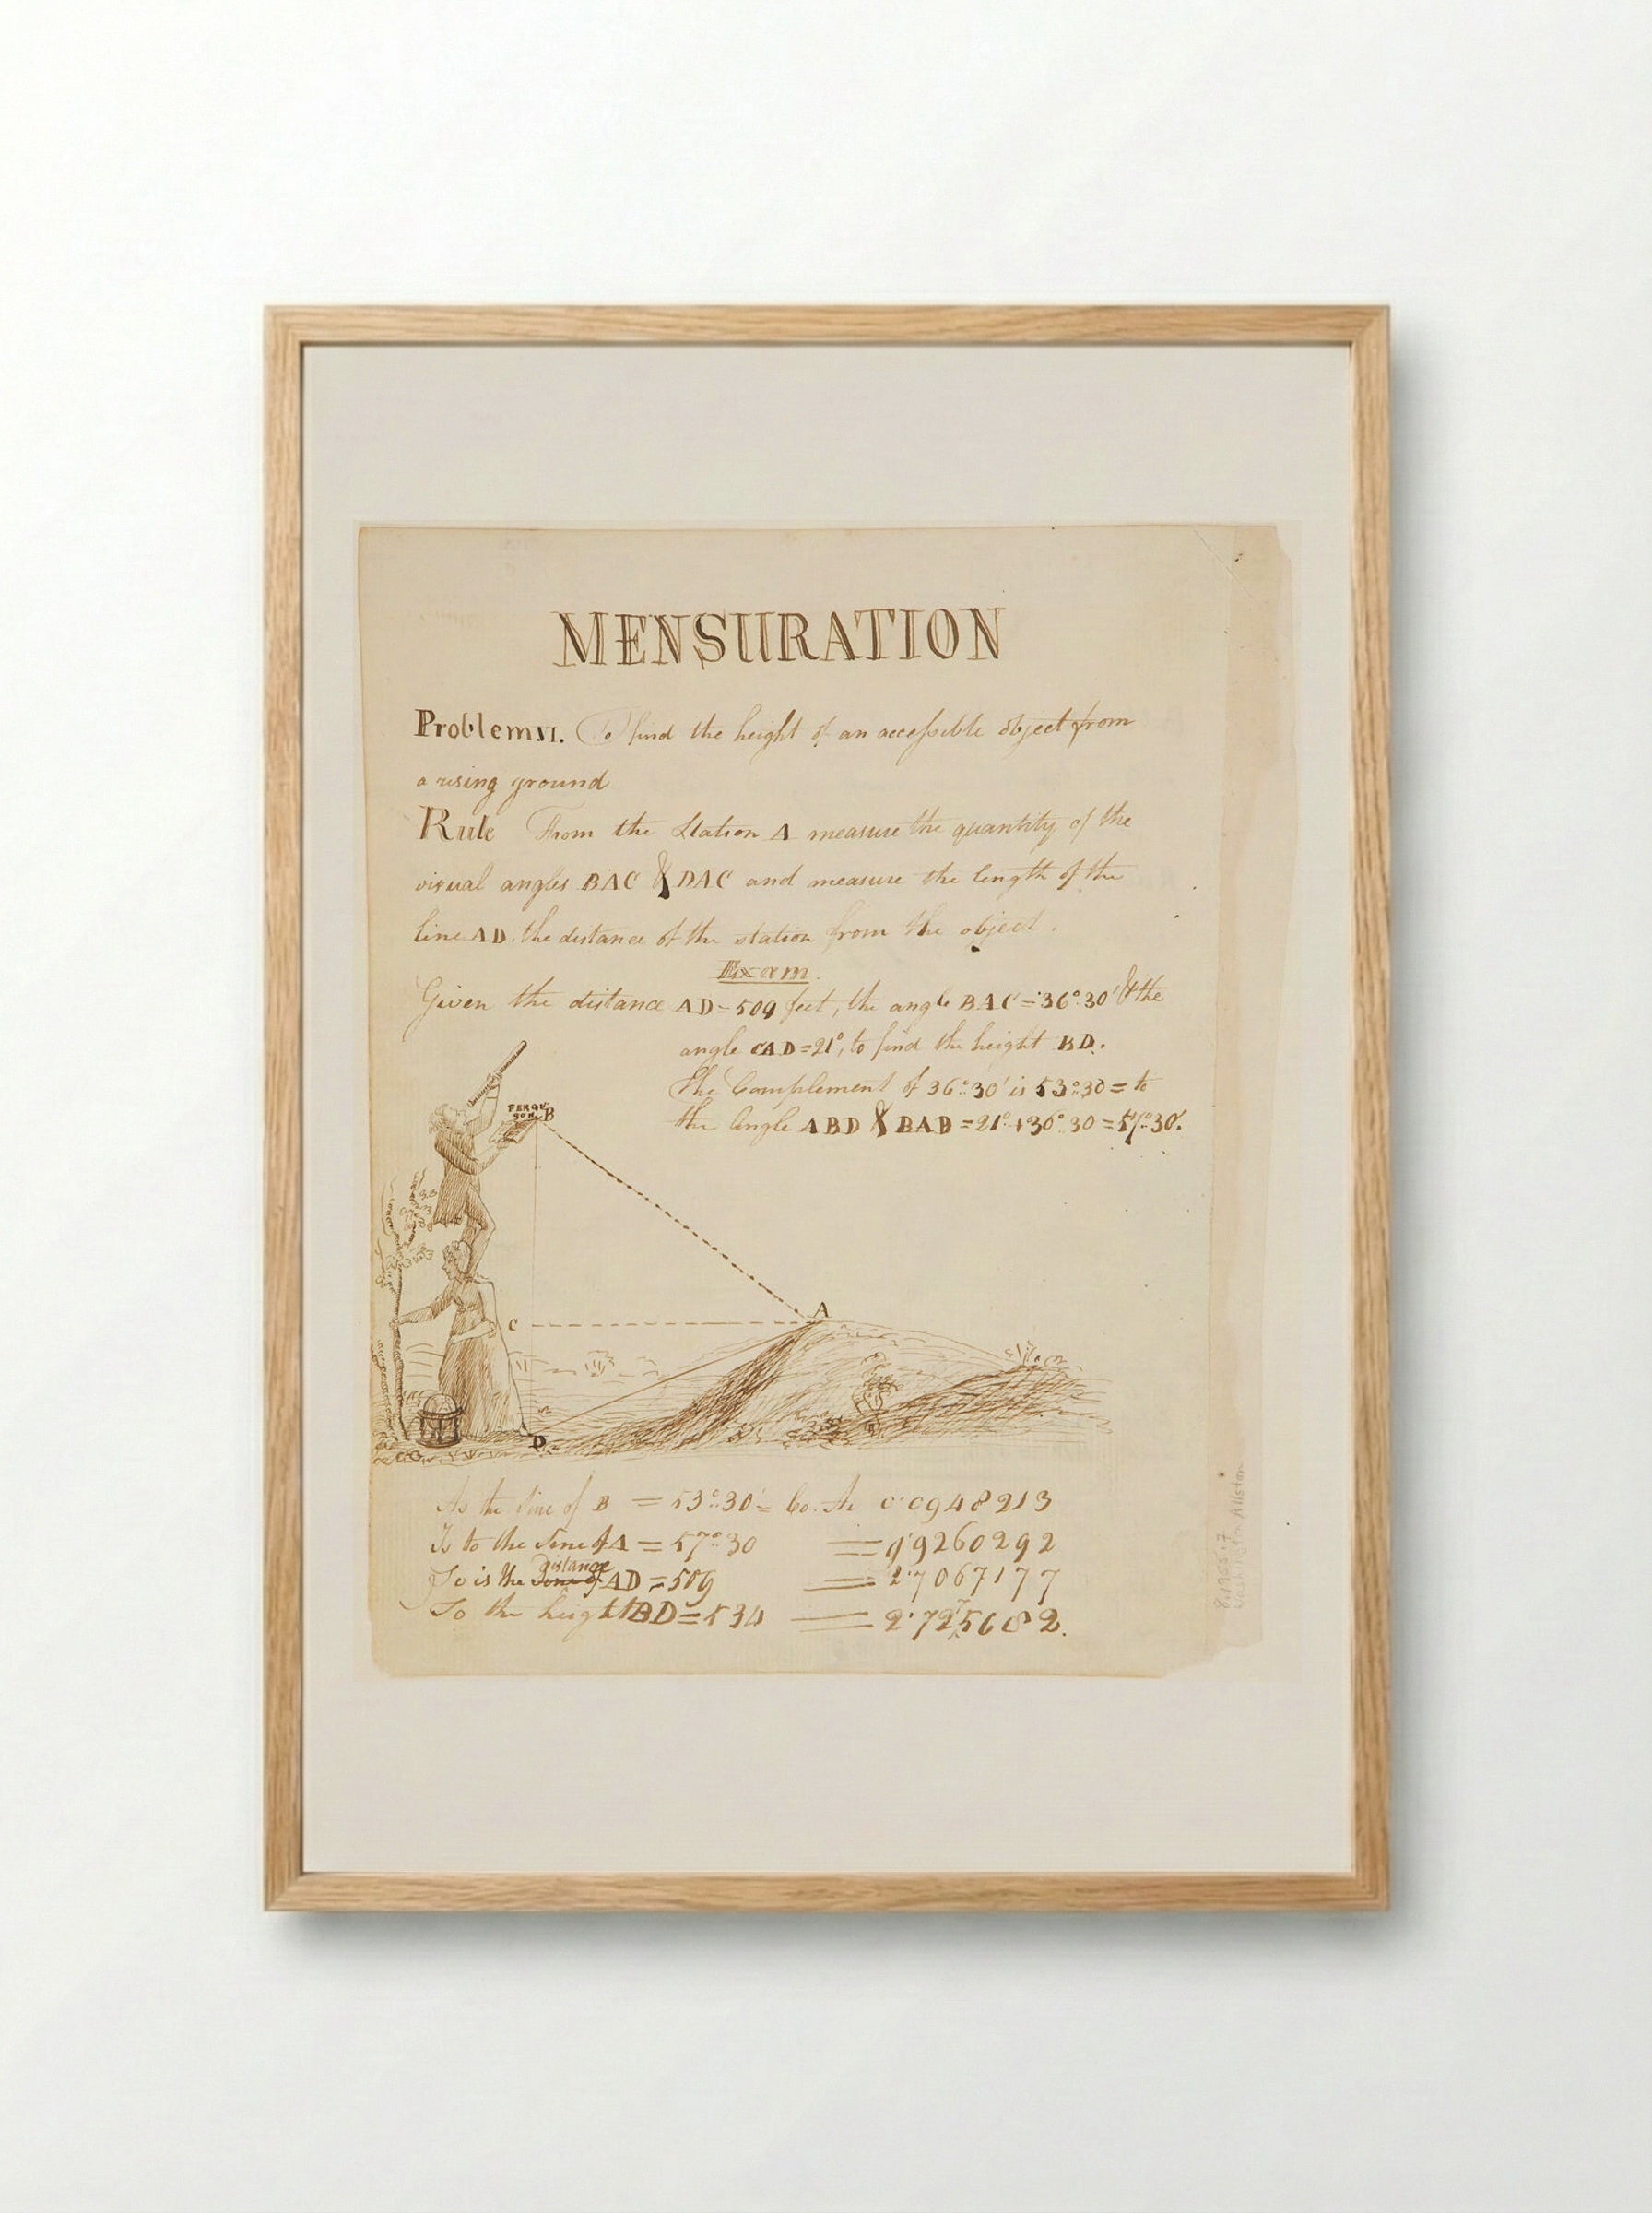 MENSURATION
Problem VI. To find the height of an accessible object from
a rising ground
Rule From the Station A measure the quantity of the
visual angles BAC & DAC and measure the length of the
line AD. the distance of the station from the object.
Exam.
Given the distance AD=509 feet, the angle BAC=36°30' & the
angle CAD=21°, to find the height BD.
The Complement of 36°30' is 53°30= to
the Angle ABD & BAD=21°+36°30=57°30'.
FERGU
SON
B
A
C
D
As the Sine of B = 53°30'= Co. Ar 0.0948213
Is to the Sine of A = 57°30 = 9.9260292
So is the Distance AD = 509 = 2.7067177
To the height BD = 534 = 2.7275682.
Washington Allston